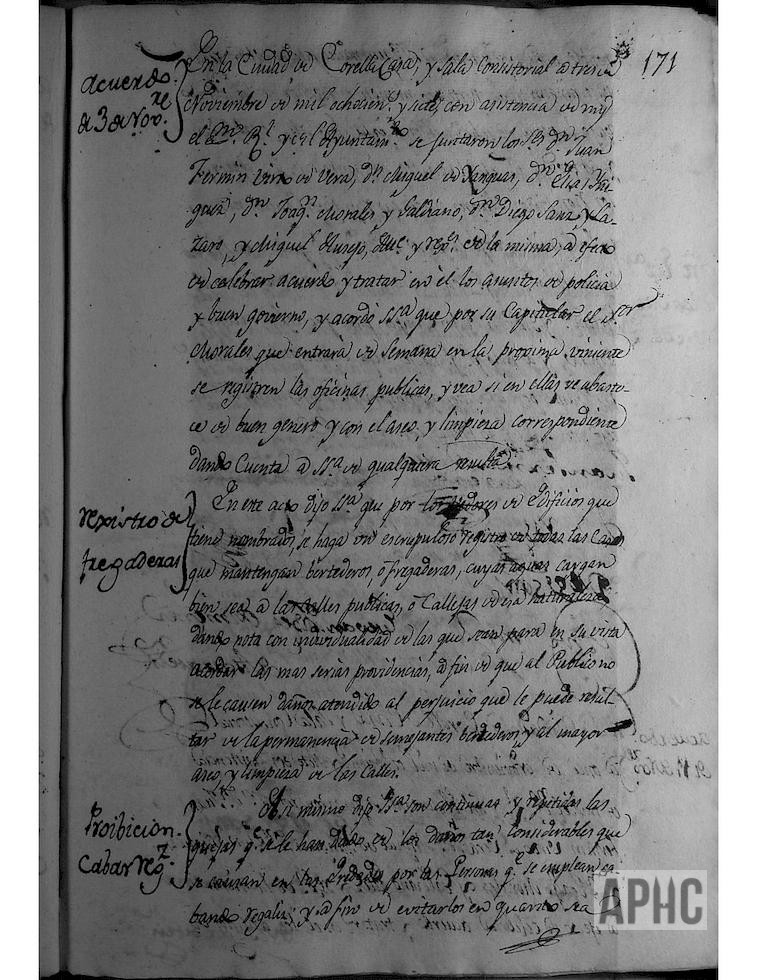 171
Acuerdo
de 3 de Nov.re
En la Ciudad de Corella Casa, y Sala Consistorial a tres de
Noviembre de mil ochocien.s y siete, con asistencia de mi
el Es.no R.l y del Ayuntam.to se juntaron los SS. D.n Juan
Fermin Virto de Vera, D.n Miguel de D.n Elias
D.n Joaq.n Morales y D.n Diego Sanz y La-
zaro, y Miguel y Reg.s de la misma, a efecto
de celebrar acuerdo y tratar en el los asuntos de policia
y buen govierno, y acordó SS.a que por su Capitular el S.or
Morales que entrará de Semana en la proxima viniente
se registren las oficinas publicas, y vea si en ellas se abaste-
ce de buen genero y con el aseo, y limpieza correspondiente
dando Cuenta a SS.a de qualquiera resulta
rexistro de
fregaderas
En este acto dijo SS.a que por los vedores de Edificios que
tiene nombrados, se haga un escrupuloso registro en todas las Casas
que mantengan bertederos, ó fregaderas, cuyas aguas cargan
bien sea a las Calles publicas, ó Callejas de esa naturaleza
dando nota con individualidad de las que sean para en su vista
acordar las mas serias providencias, a fin de que al Publico no
se le causen daños atendido al perjuicio que le puede resul-
tar de la permanencia de semejantes bertederos, y al mayor
aseo, y limpieza de las Calles.
Proibicion
Cabar reg.z
Asi mismo dijo SS.a son continuas y repetidas las
quejas q.e se le han dado de los daños tan Considerables que
se causan en las eredades por las Personas q.e se emplean ca-
bando regaliz, y a fin de evitarlos en quanto sea
APHC